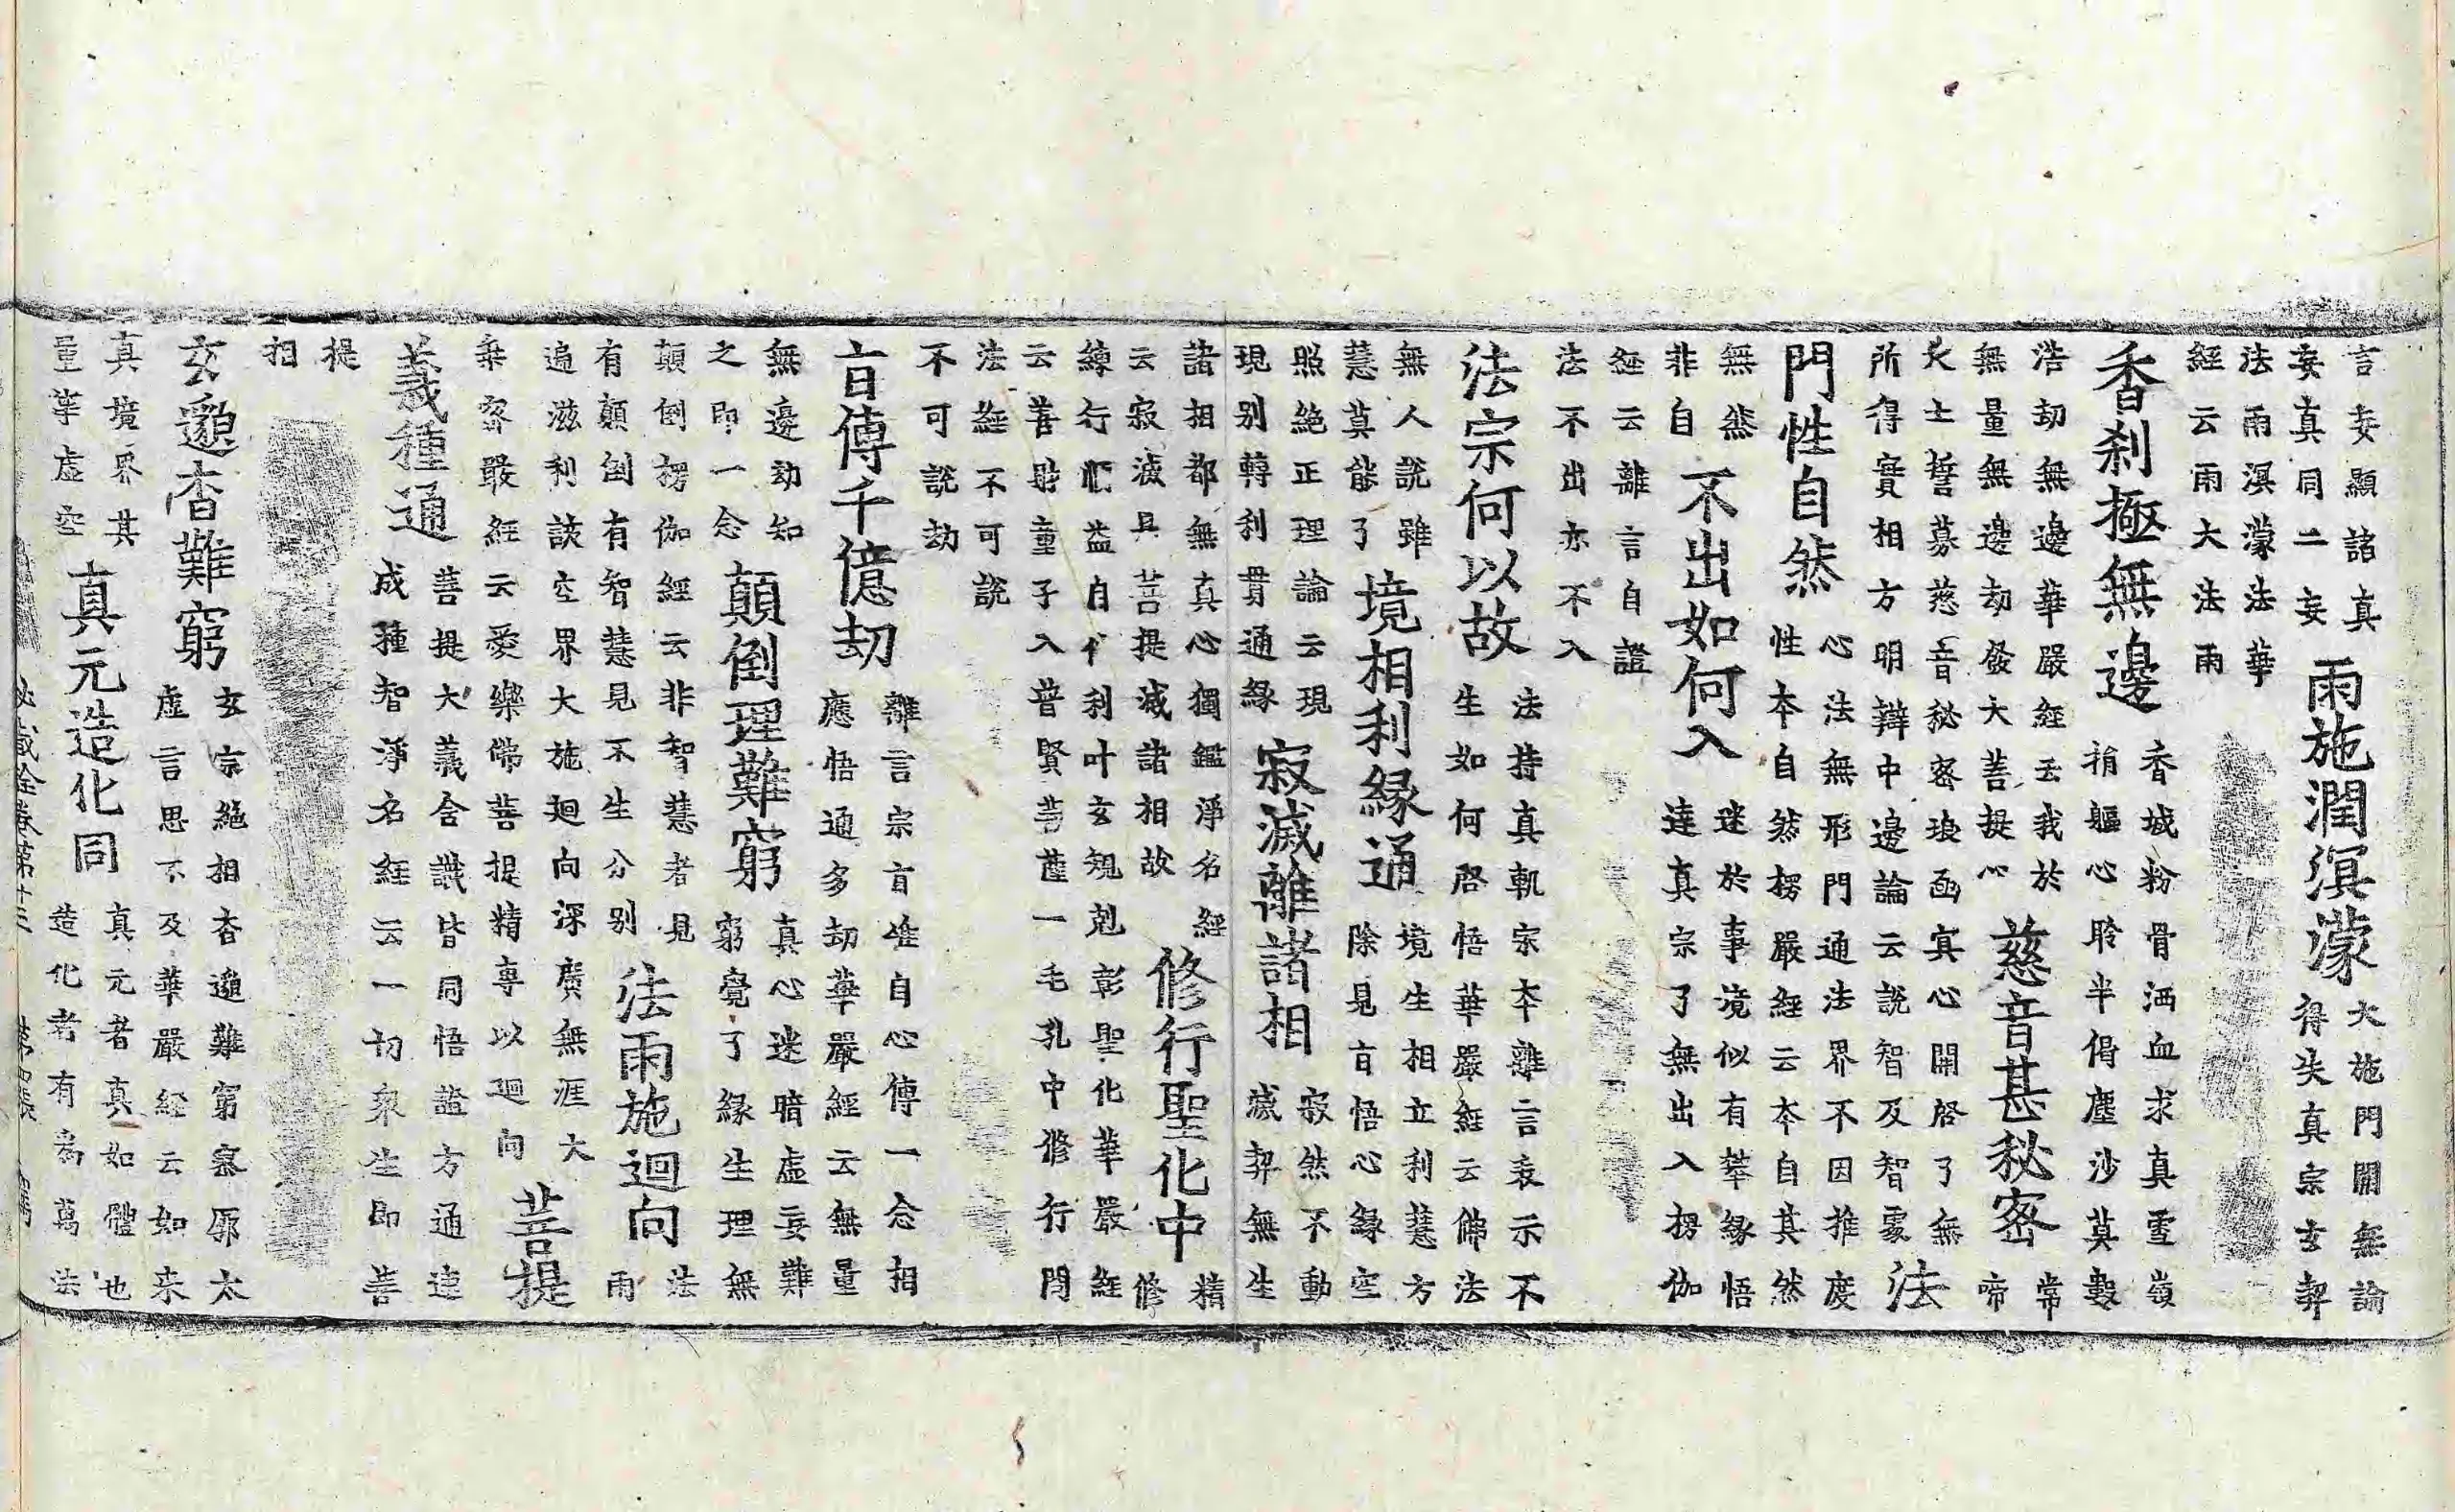 言妄顯諸真
妄真同二妄
雨施潤溟濛
大施門開無論
得失真宗玄契
法雨溟濛法華
經云雨大法雨
香剎極無邊
香城粉骨洒血求真雪嶺
捐軀心聆半偈塵沙莫數
浩劫無邊華嚴經云我於
無量無邊劫發大菩提心
慈音甚秘密
常
啼
大士誓募慈音秘密琅函真心開啓了無
所得實相方明辯中邊論云說智及智處
法
門性自然
心法無形門通法界不因推度
性本自然楞嚴經云本自其然
無然
非自
不出如何入
迷於事境似有莘緣悟
達真宗了無出入楞伽
經云離言自證
法不出亦不入
法宗何以故
法持真軌宗本離言表示不
生如何啓悟華嚴經云佛法
無人說雖
慧莫能了
境相利緣通
境生相立利慧方
除見旨悟心緣空
照絕正理論云現
現別轉利貫通緣
寂滅離諸相
寂然不動
滅契無生
諸相都無真心獨鑑淨名經
云寂滅具菩提滅諸相故
修行聖化中
精
修
練行順益自他利叶玄規剋彰聖化華嚴經
云善財童子入普賢菩薩一毛孔中修行問
法經不可說
不可說劫
旨傳千億劫
離言宗旨唯自心傳一念相
應悟通多劫華嚴經云無量
無邊劫知
之即一念
顛倒理難窮
真心迷暗虛妄難
窮覺了緣生理無
顛倒楞伽經云非智慧者見
有顛倒有智慧見不生分別
法雨施迴向
法
雨
遍滋利談空界大施迴向深廣無涯大
乘密嚴經云愛樂佛菩提精專以迴向
菩提
義種通
菩提大義含識皆同悟證方通達
成種智淨名經云一切眾生即菩
提
相
玄邈杳難窮
玄宗絕相杳邈難窮寥廓太
虛言思不及華嚴經云如來
真境界其
量等虛空
真元造化同
真元者真如體也
造化者有為萬法
秘藏詮卷第十三